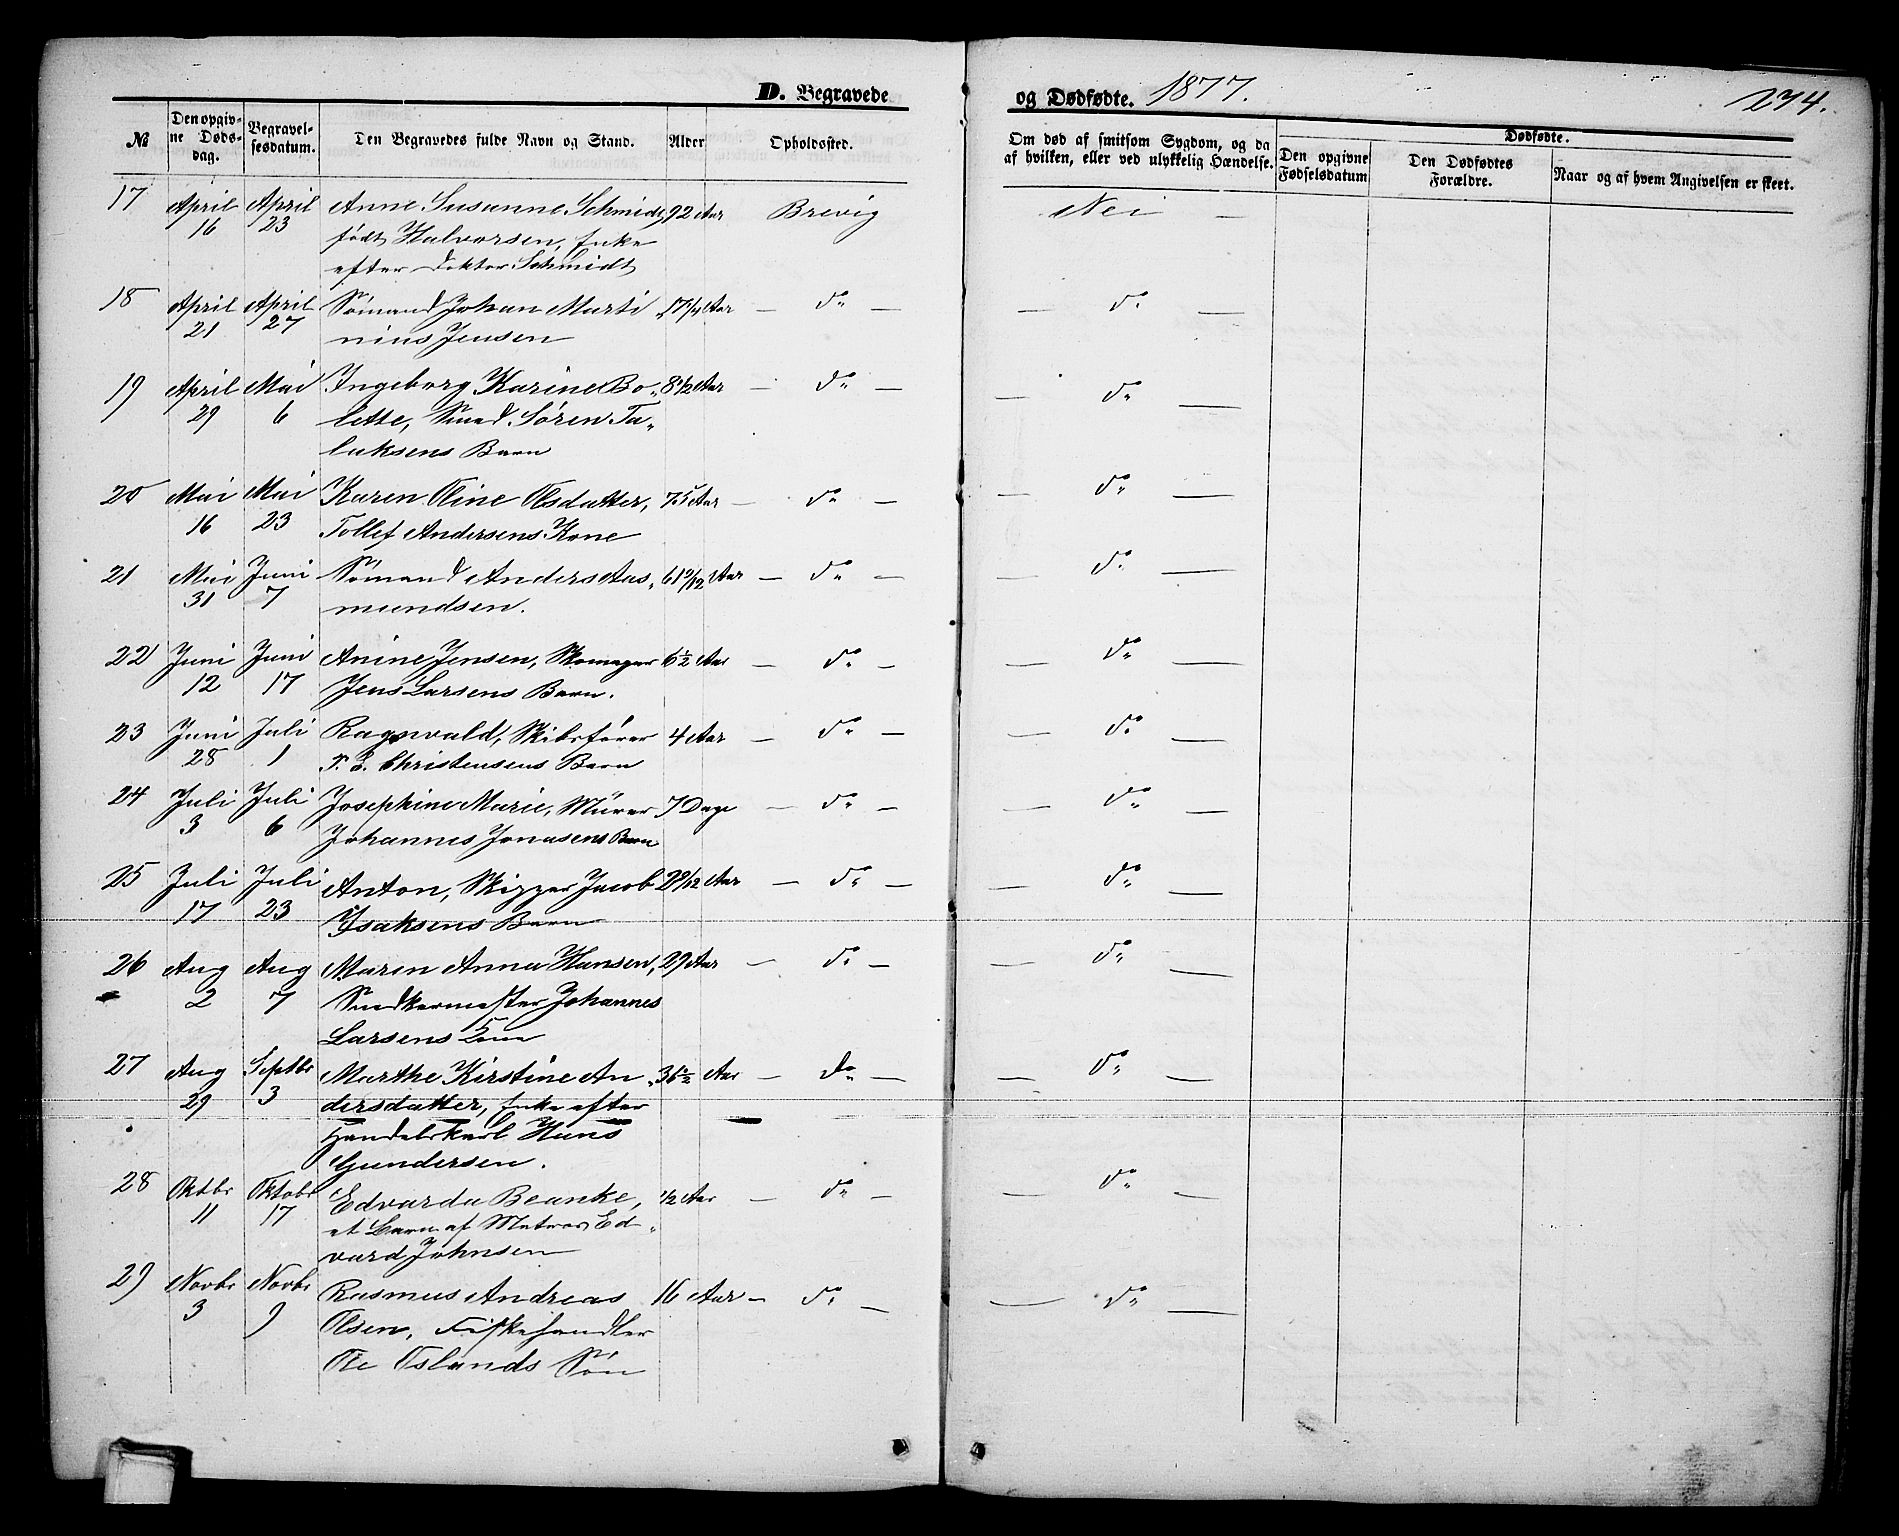 D. Begravede
og Dødfødte. 1877. 274.
№ Den opgivne Dødsdag. Begravelsesdatum. Den Begravedes fulde Navn og Stand. Alder Opholdssted. Om død af smitsom Sygdom, og da af hvilken, eller ved ulykkelig Hændelse. Dødfødte. Den opgivne Fødselsdatum Den Dødfødtes Forældre. Naar og af hvem Angivelsen er skeet.
17 April April Anne Susanne Schmidt, 92 Aar Brevig Nei —
16 23 født Halvorsen, Enke
efter Doktor Schmidt
18 April April Sømand Johan Marti 17 Aar — do — — do —
21 27 nius Jensen
19 April Mai Ingeborg Karine Bo- 8 1/2 Aar — do — — do —
29 6 lette, Smed Søren Ta-
laksens Barn
20 Mai Mai Karen Oline Olsdatter, 75 Aar — do — — do —
16 23 Tollef Andersens Kone
21 Mai Juni Sømand Anders Aas- 61 Aar — do — — do —
31 7 mundsen.
22 Juni Juni Anine Jensen, Skomager 6 1/2 Aar — do — — do —
12 17 Jens Larsens Barn.
23 Juni Juli Ragnvald, Skibsfører 4 Aar — do — — do —
28 1 Christensens Barn
24 Juli Juli Josephine Marie, Mürer 7 Dage — do — — do —
3 6 Johannes Jonasens Barn
25 Juli Juli Anton, Skipper Jacob Aar — do — — do —
17 23 Isaksens Barn
26 Aug Aug Maren Anna Hansen, 29 Aar — do — — do —
2 7 Snedkermester Johannes
Larsens
27 Aug Septbr Marthe Kirstine An- 36 1/2 Aar — do — — do —
29 3 dersdatter, Enke efter
Handelskarl Hans
Gundersen.
28 Oktbr Oktobr Edvarda Beanke, 1/2 Aar — do — — do —
11 17 et Barn af Matros Ed-
vard Johnsen
29 Novbr Novbr Rasmus Andreas 16 Aar — do — — do —
3 9 Olsen, Fiskehandler
Ole Oslands Søn